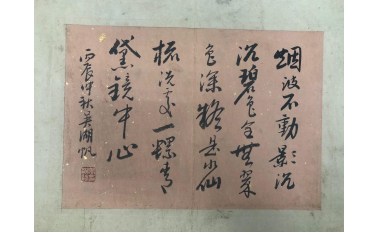 烟波不動影沉
沉碧色全無翠
色深疑是水仙
梳洗處一螺青
黛鏡中心
丙辰仲秋吳湖帆